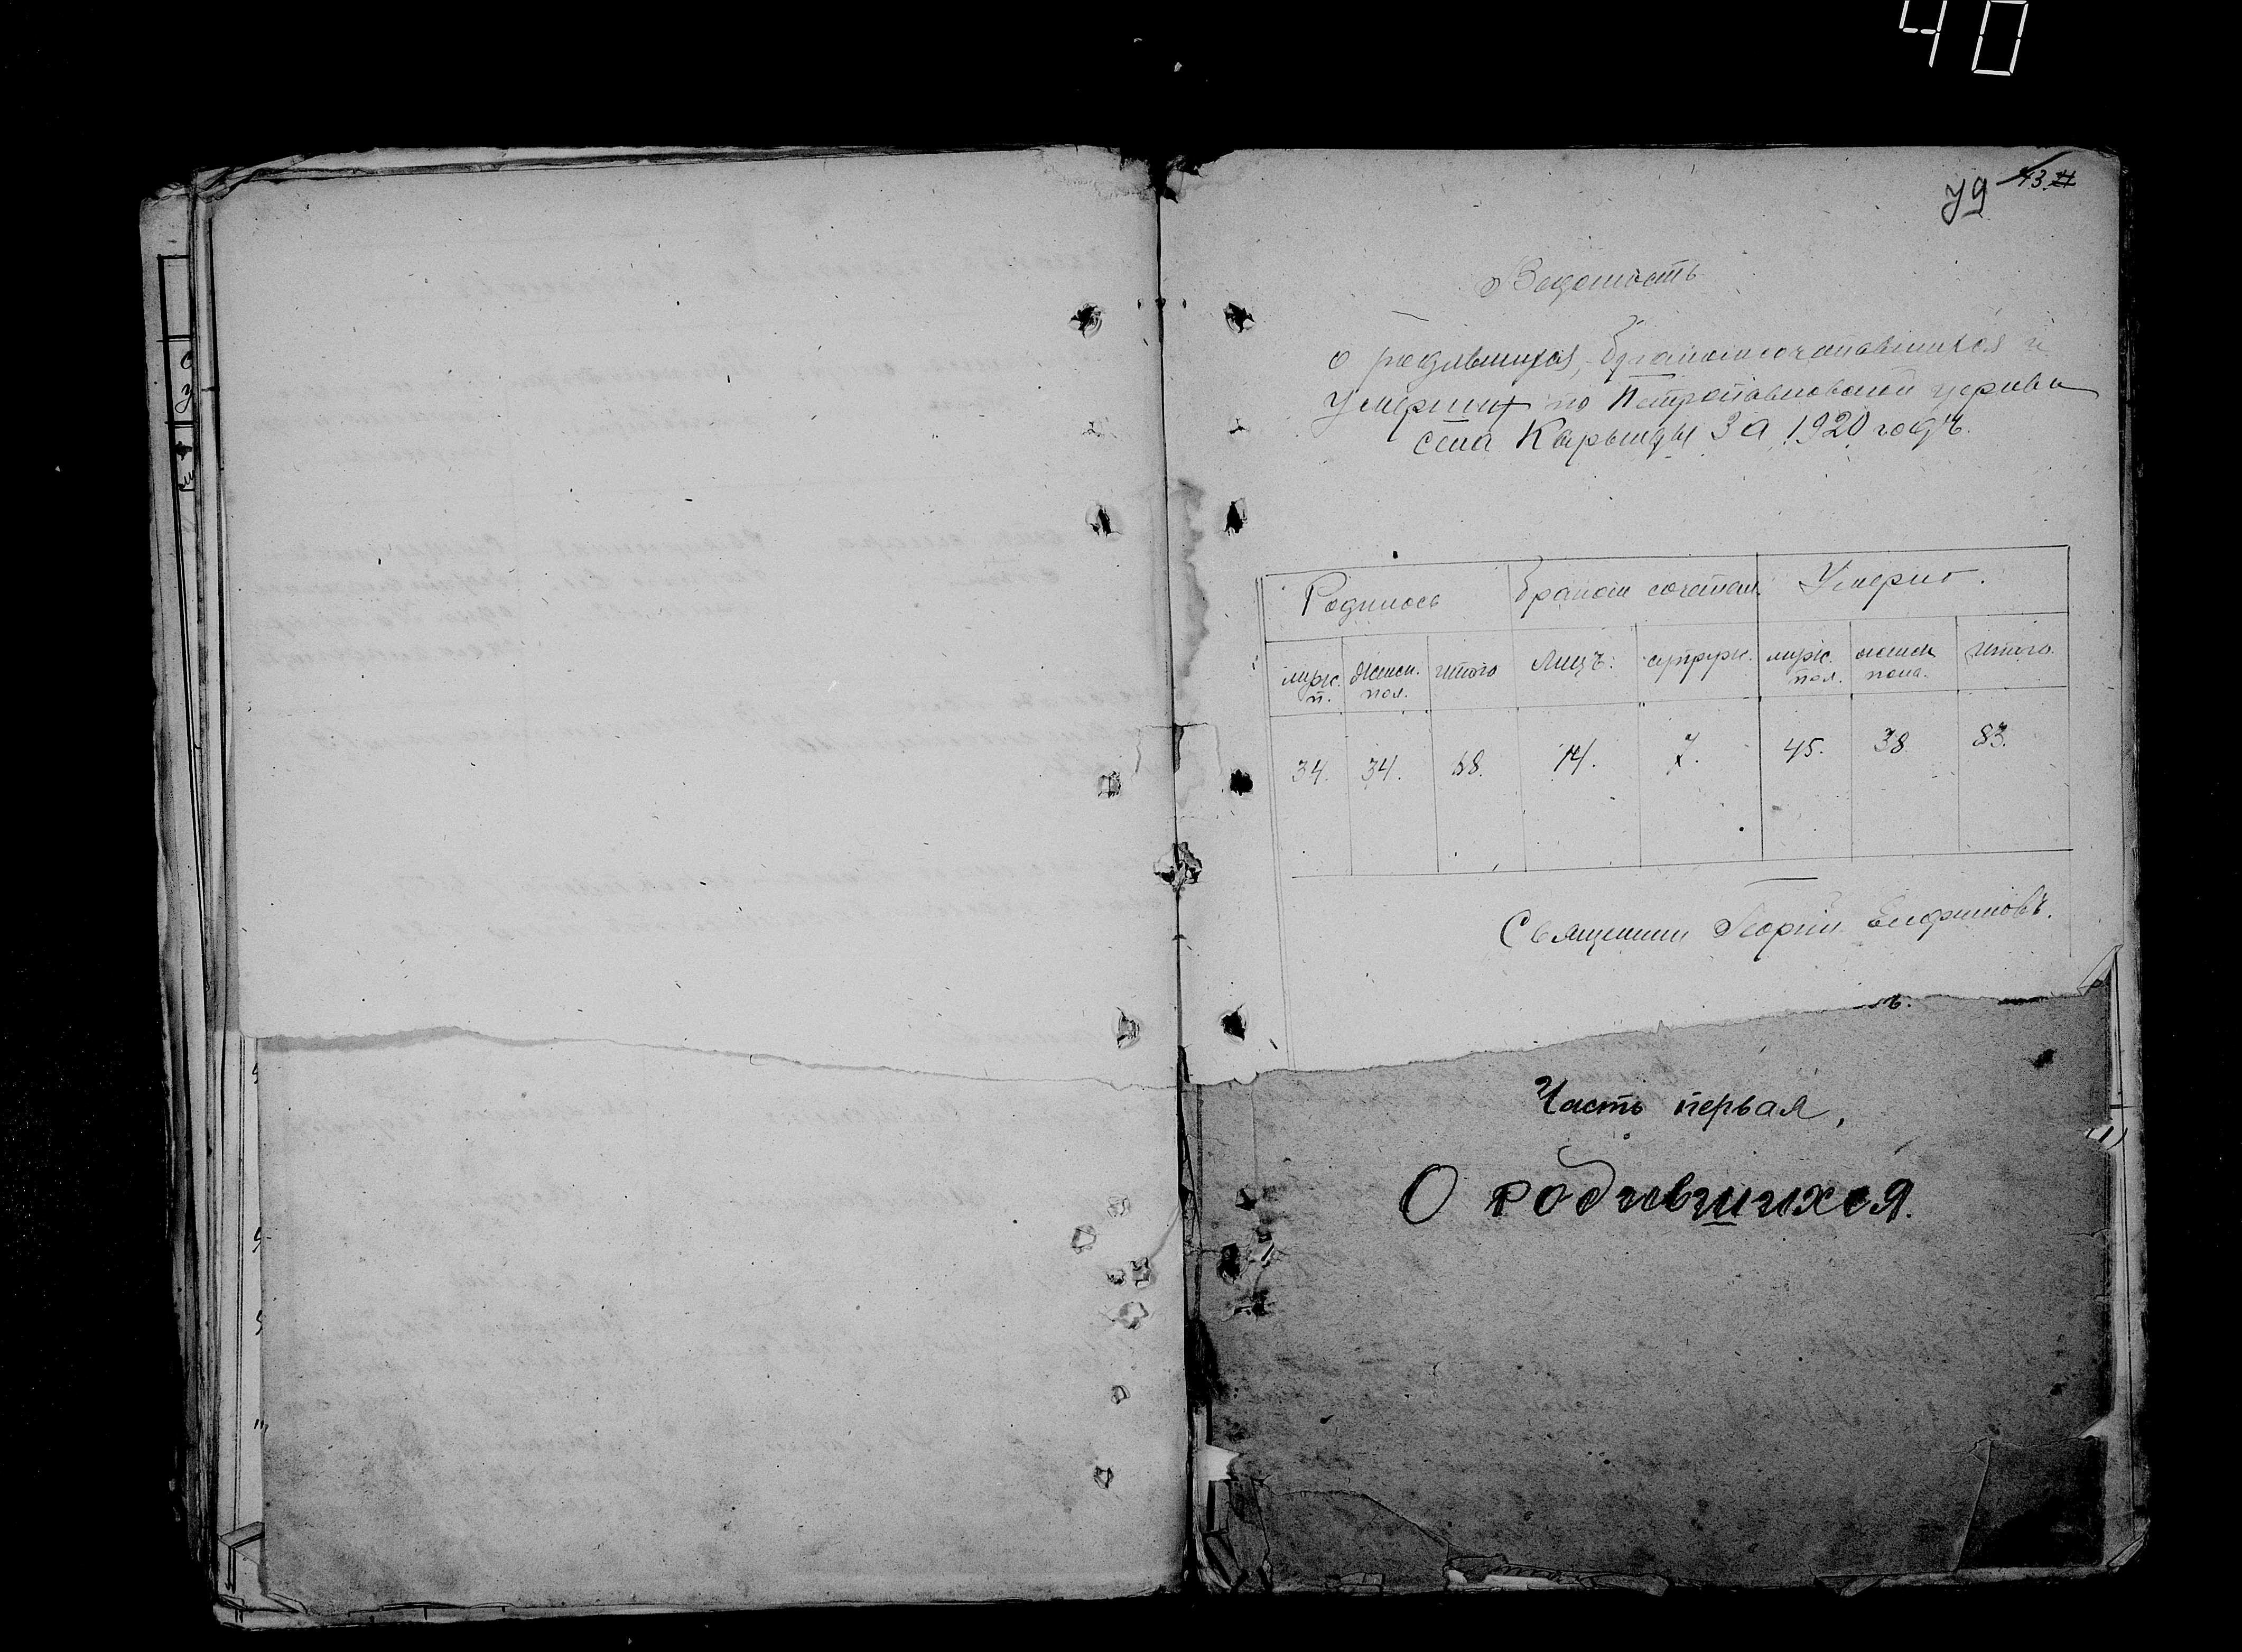 40
43
Ведомость
о родившихся, бракомсочетавшихся и
умерших по Петропавловской церкви
села Каръинцы За 1920 годъ.
Родилось Браком сочетал. Умерло.
муж. п. женск. пол. итого лицъ. супруж. муж. пол. женск пола. итого.
34. 34. 68. 14. 7. 45. 38. 83.
Священник Георгий Елфимовъ.
ъ.
Часть первая,
О родившихся.